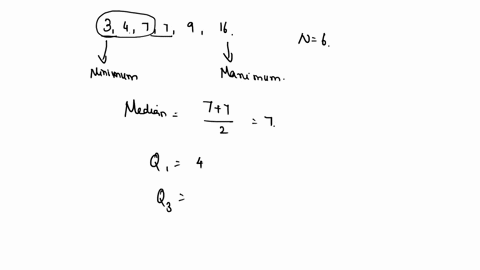 3, 4, 7, 7, 9, 16. N=6.
Minimum Maximum.
Median = 7+7 / 2 = 7.
Q1 = 4
Q3 =